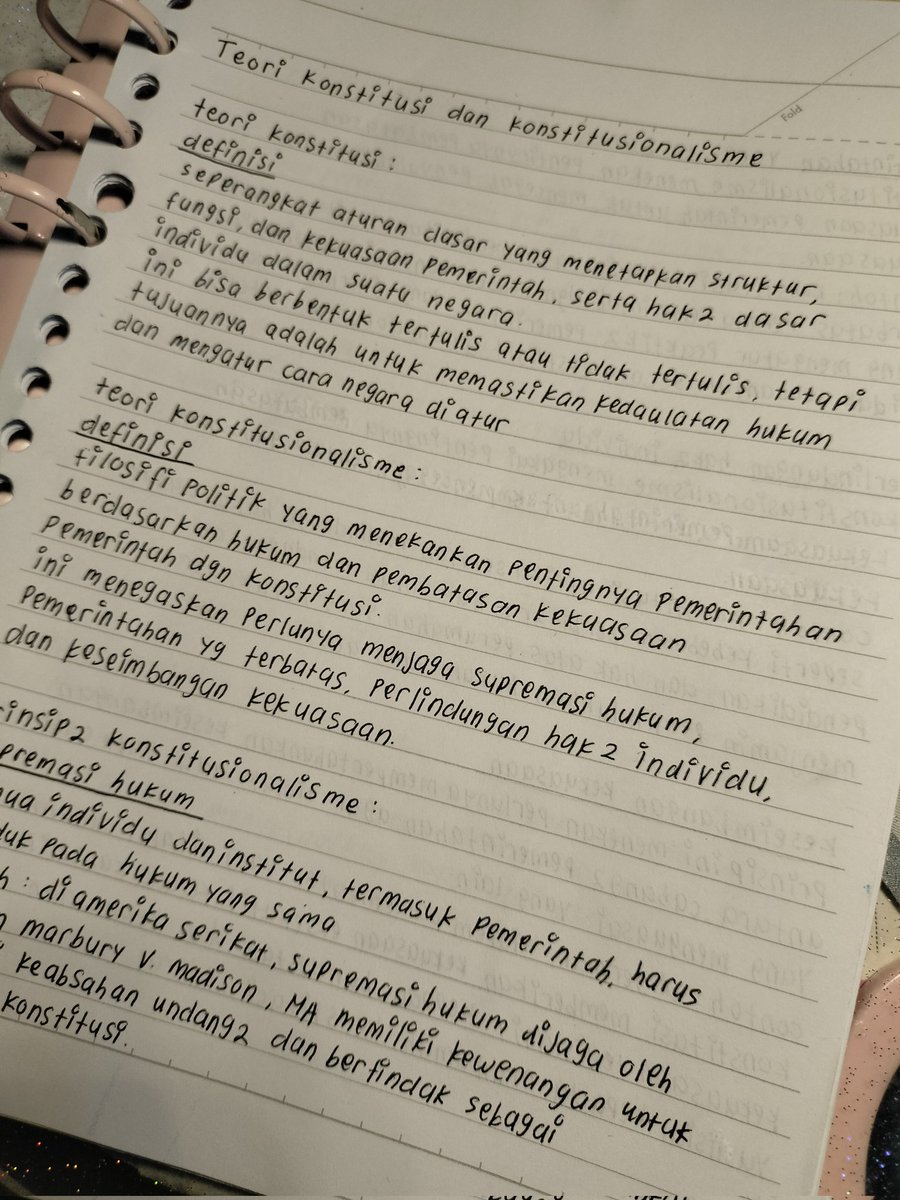 Fold
Teori Konstitusi dan Konstitusionalisme
teori konstitusi :
definisi
seperangkat aturan dasar yang menetapkan struktur,
fungsi, dan kekuasaan pemerintah, serta hak2 dasar
individu dalam suatu negara.
ini bisa berbentuk tertulis atau tidak tertulis, tetapi
tujuannya adalah untuk memastikan kedaulatan hukum
dan mengatur cara negara diatur
teori konstitusionalisme :
definisi
filosifi politik yang menekankan pentingnya pemerintahan
berdasarkan hukum dan pembatasan kekuasaan
pemerintah dgn konstitusi.
ini menegaskan perlunya menjaga supremasi hukum,
pemerintahan yg terbatas, perlindungan hak2 individu,
dan keseimbangan kekuasaan.
insip2 konstitusionalisme :
premasi hukum
ua individu dan institut, termasuk pemerintah, harus
duk pada hukum yang sama
h : di amerika serikat, supremasi hukum dijaga oleh
marbury v. madison, MA memiliki kewenangan untuk
keabsahan undang2 dan bertindak sebagai
konstitusi.